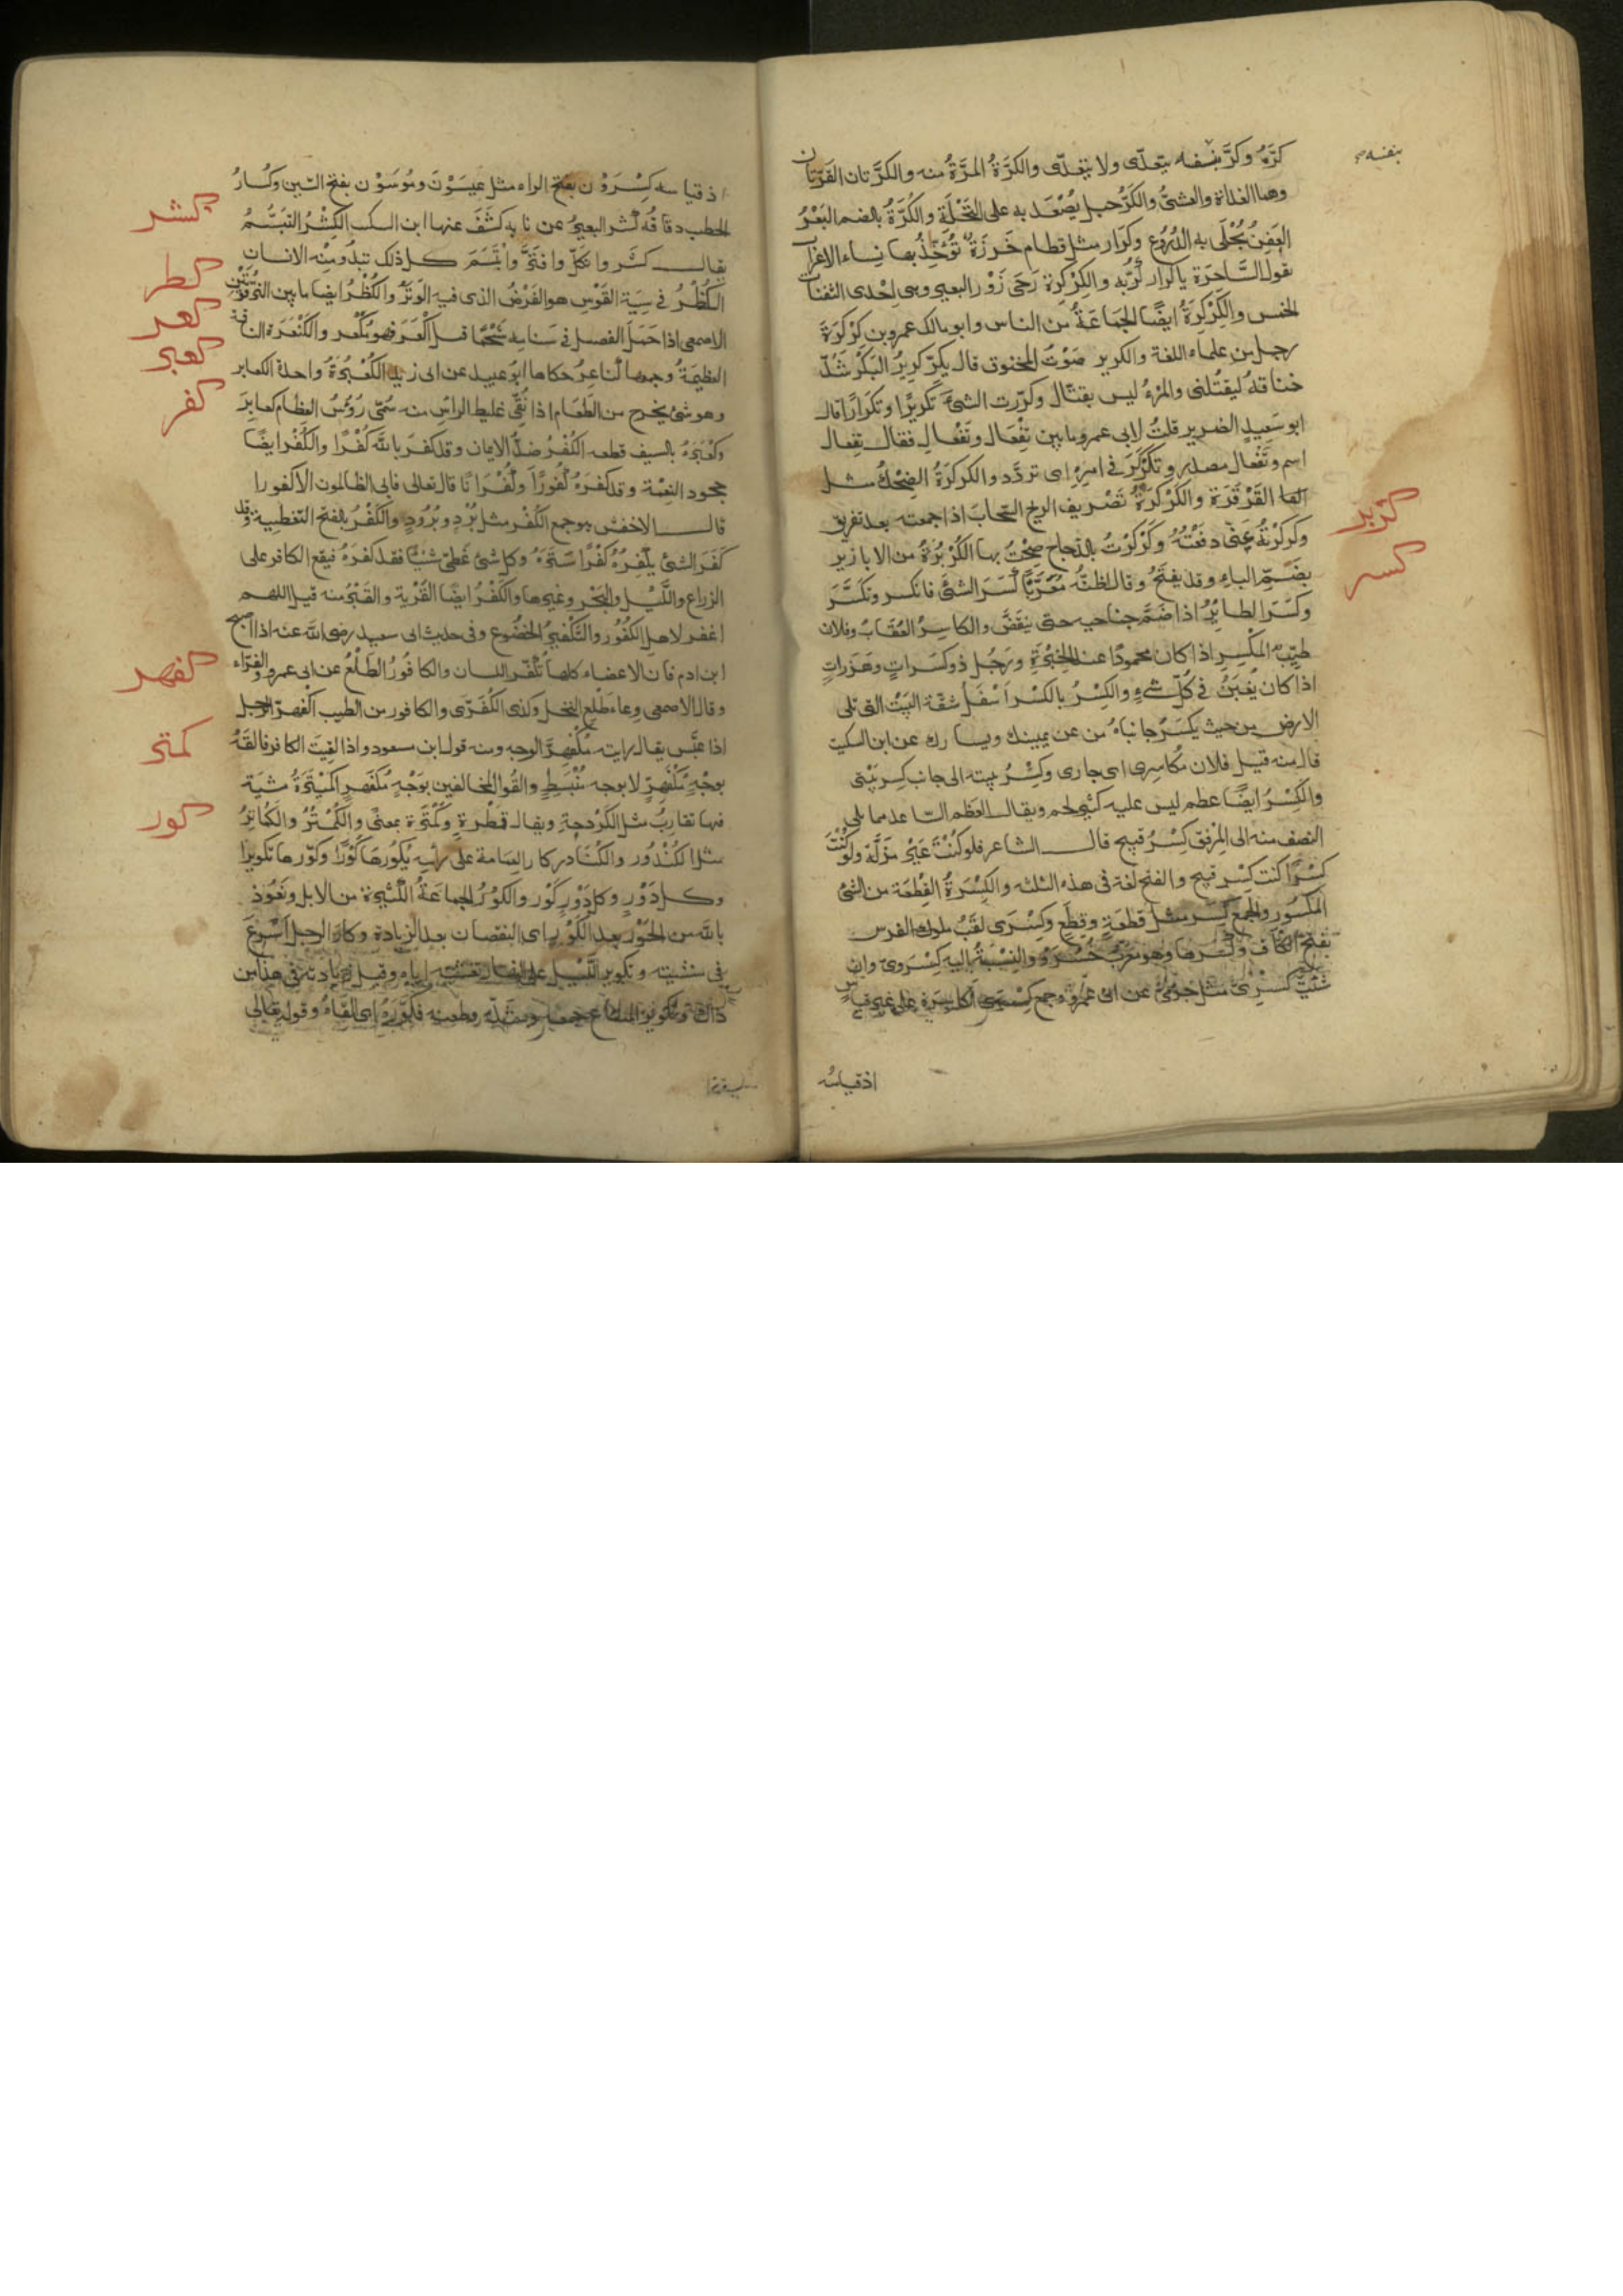 بنفسه
كَرَّهُ وكَرَّ بنفسه يتعدّى ولا يتعدّى والكَرَّةُ المَرَّةُ منه والكَرَّتان القَرَّتان
وهما الغداة والعشىُّ والكَرُّ حبل يُصْعَد به على النَّخْلَةِ والكُرَّةُ بالضم البَعْرُ
العَفِنُ يُجْلَى به الدُّرُوع وكَرارِ مثل قطام خَرَزَةٌ تُؤَخِّذُ بها نساء الاعراب
تقول السَّاحرة يا كرارِ كُرِّيه والكِرْكِرة رَحَى زَوْرِ البعير وهى اِحْدى الثفنات
الخمس والكِرْكِرَةُ ايضًا الجَمَاعَةُ مِنَ الناس وابو مالك عمرو بن كِرْكِرَةَ
رجل من علماء اللغة والكرير صَوْتُ المخنوق قال يَكِرُّ كَرِيرَ البَكْرِ شُدَّ
خناقهُ ليقتُلنى والمَرْءُ ليس بقتّال وكرّرت الشىءَ تَكْرِيرًا وتَكْرَارًا قال
ابو سَعيد الضرير قلتُ لابى عمرو ما بين تِفْعَال وتَفْعَال فقال تِفعال
اسم وتَفْعَال مصدر وتَكَرْكَرَ فى امرِهِ اى تردَّد والكركرَةُ الضِحْكُ مثل
القَرْقَرَة والكَرْكَرَةُ تَصْرِيف الريح السَّحابَ اذا جمعته بعد تفريق
كزبر
وكركرتُهُ عنّى دفعْتُهُ وكَرْكَرْتُ بالدجاج صِحْتُ بها الكُزْبُرَةُ من الابازير
كسر
بضَمِّ الباء وقد يفتَحُ وقال اظنّه مُعَرَّبًا كَسَرَ الشىءَ فانكسر وتكسَّرَ
وكَسَرَ الطائِرُ اذا ضَمَّ جناحيه حتى ينقَضَّ والكاسِرُ العُقَابُ وفلان
طيّبُ المَكْسِرِ اذا كان محمودًا عند الخِبْرَةِ ورَجُل ذو كَسَراتٍ وهَزَراتٍ
اذا كان يُغْبَنُ فى كُلِّ شىءٍ والكِسْرُ بالكسْر اَسْفَلُ شقّة البَيْت التى تلى
الارض من حيث يكسَرُ جانباهُ من عن يمينك ويسارك عن ابن السكيت
قال منه قيل فلان مُكاسِرِى اى جارى وكِسْرُ بيته الى جانب كِسر بَيْتى
والكَِسْرُ ايضًا عظم ليس عليه كثير لحم ويقال لعظم السّاعد مما يلى
النصف منه الى المِرْفق كِسْرُ قبيح قال الشاعر فلو كُنْتَ عَيْرًا كنت عَيْرَ مَذَلَّة ولو كُنْتَ
كِسْرًا كنت كِسْرَ قبيح والفتح لغة فى هذه الثلثة والكِسْرَةُ القِطْعَة من الشئ
المَكْسُور والجَمعُ كِسَر مثل قطعَةٍ وقِطَعٍ وكِسْرَى لقَبُ ملوك الفرس
بفَتْح الكاف وكَسْرها وهو مُعَرَّب خُسْرَوْ والنِسْبَةُ اليه كِسْرَوِىّ وان
شئتَ كِسْرِىّ مثل حِرْمىّ عن ابى عَمْرو وجمع كِسْرَى اَكاسِرَة على غير قياس
اذ قياسُه
اذ قياسه كِسْرَوْن بفتح الراء مثل عِيسَوْنَ ومُوسَوْن بفتح السّين وكُسَارُ
كشر
الحطب دقاقُه كشر البعيرُ عن نابه كَشَفَ عنها ابن السك الكَشْرُ التبَسُّمُ
يقال كَشَر وانكلّ وافتَرَّ وابْتَسَمَ كل ذلك تبدُو مِنْه الاسنان
كظر
الكُظْرُ فى سِيَةِ القَوْسِ هو الفَرْضُ الذى فيه الوَتَرُ والكُظْرُ ايضا ما بين التَّرْقُوَتَيْن
كعر
الاصمعى اذا حَمَلَ الفصيل فى سَنامِهِ شَحْمًا قيل اَكْعَرَ فهو مُكْعِر والكَنْعَرَة الناقة
كعبر
العظيمَةُ وجمعها كَناعِرُ حكاها ابو عبيد عن ابى زيد الكُعْبُرَةُ واحدة الكعابر
وهو شئ يخرج من الطعَام اذا نُقِّىَ غليظ الراس منه سُمّى رُؤُسُ العظام كعابِرَ
كفر
وكَعْبَرَهُ بالسيف قطعه الكُفْرُ ضدُّ الايمان وقد كَفَرَ باللّه كُفْرًا والكُفْرُ ايضًا
جحود النِعْمَة وقد كفَرَهُ كُفُورًا وكُفْرَانًا قال تعالى فابى الظالمون الا كفورا
قال الاخفش هو جمع الكُفْر مثل بُرْدٍ وبُرُودٍ والكَفْرُ بالفتح التغطية وقد
كَفَرَ الشئ يكْفِرُهُ كَفْرًا سَتَرَهُ وكل شئ غَطّى شَيْئًا فقد كفَرَهُ فيقع الكافر على
الزراع واللَّيْل والبَحْر وغيرها والكَفْرُ ايضًا القَرْية والقَبْرُ منه قيل اللهم
اغفر لاهل الكُفُور والتَكْفِيرُ الخضُوع وفى حديث ابى سعيد رضى اللّه عنه اذا اصبح
كفهر
ابن ادم فان الاعضاء كلها تُكَفِّر للسان والكافُورُ الطَلْعُ عن ابى عمرو والفرّاء
وقال الاصمعى وعاء طَلْعِ النخل وكذلك الكُفَرَّى والكافور من الطيب اكْفَهَرَّ الرجل
كمتر
اذا عبَّس يقال رايته مُكْفَهِرَّ الوجه ومنه قول ابن مسعود واذا لقِيتَ الكافر فالقَهُ
بوجْهٍ مُكْفَهِرٍّ لا بوجه مُنْبَسِطٍ والقُوا المخالفين بوَجْهٍ مُكْفَهِر الكَمْتَرَةُ مِشْيَة
كور
فيها تقارب مثل الكَرْدحةِ ويقال قمْطَرَةٍ وكَمْتَرَةٍ بمعنًى والكُمْتُرُ والكُمَاتِرُ
مثل الكُنْدُور والكُنَادر كار العِمامة على رأسه يَكُورُها كَوْرًا وكوّرها تكويرًا
وكل دَوْرٍ كَوْر والكَوْرُ الجماعَةُ الكَثِيرَةُ من الابل ونَعُوذ
باللّه من الحَوْر بعد الكَوْرِ اى النقصان بعد الزيادة وكارَ الرجل اَسْرَعَ
فى مشيته وتكوير اللَّيْل على النهار تَغْشِيته اياه وقيل زيادته فى هذا من
ذاك وتكوير المتاع جمعه وشدّه وطعنه فكَوَّرَهُ اى القَاهُ وقوله تعالى